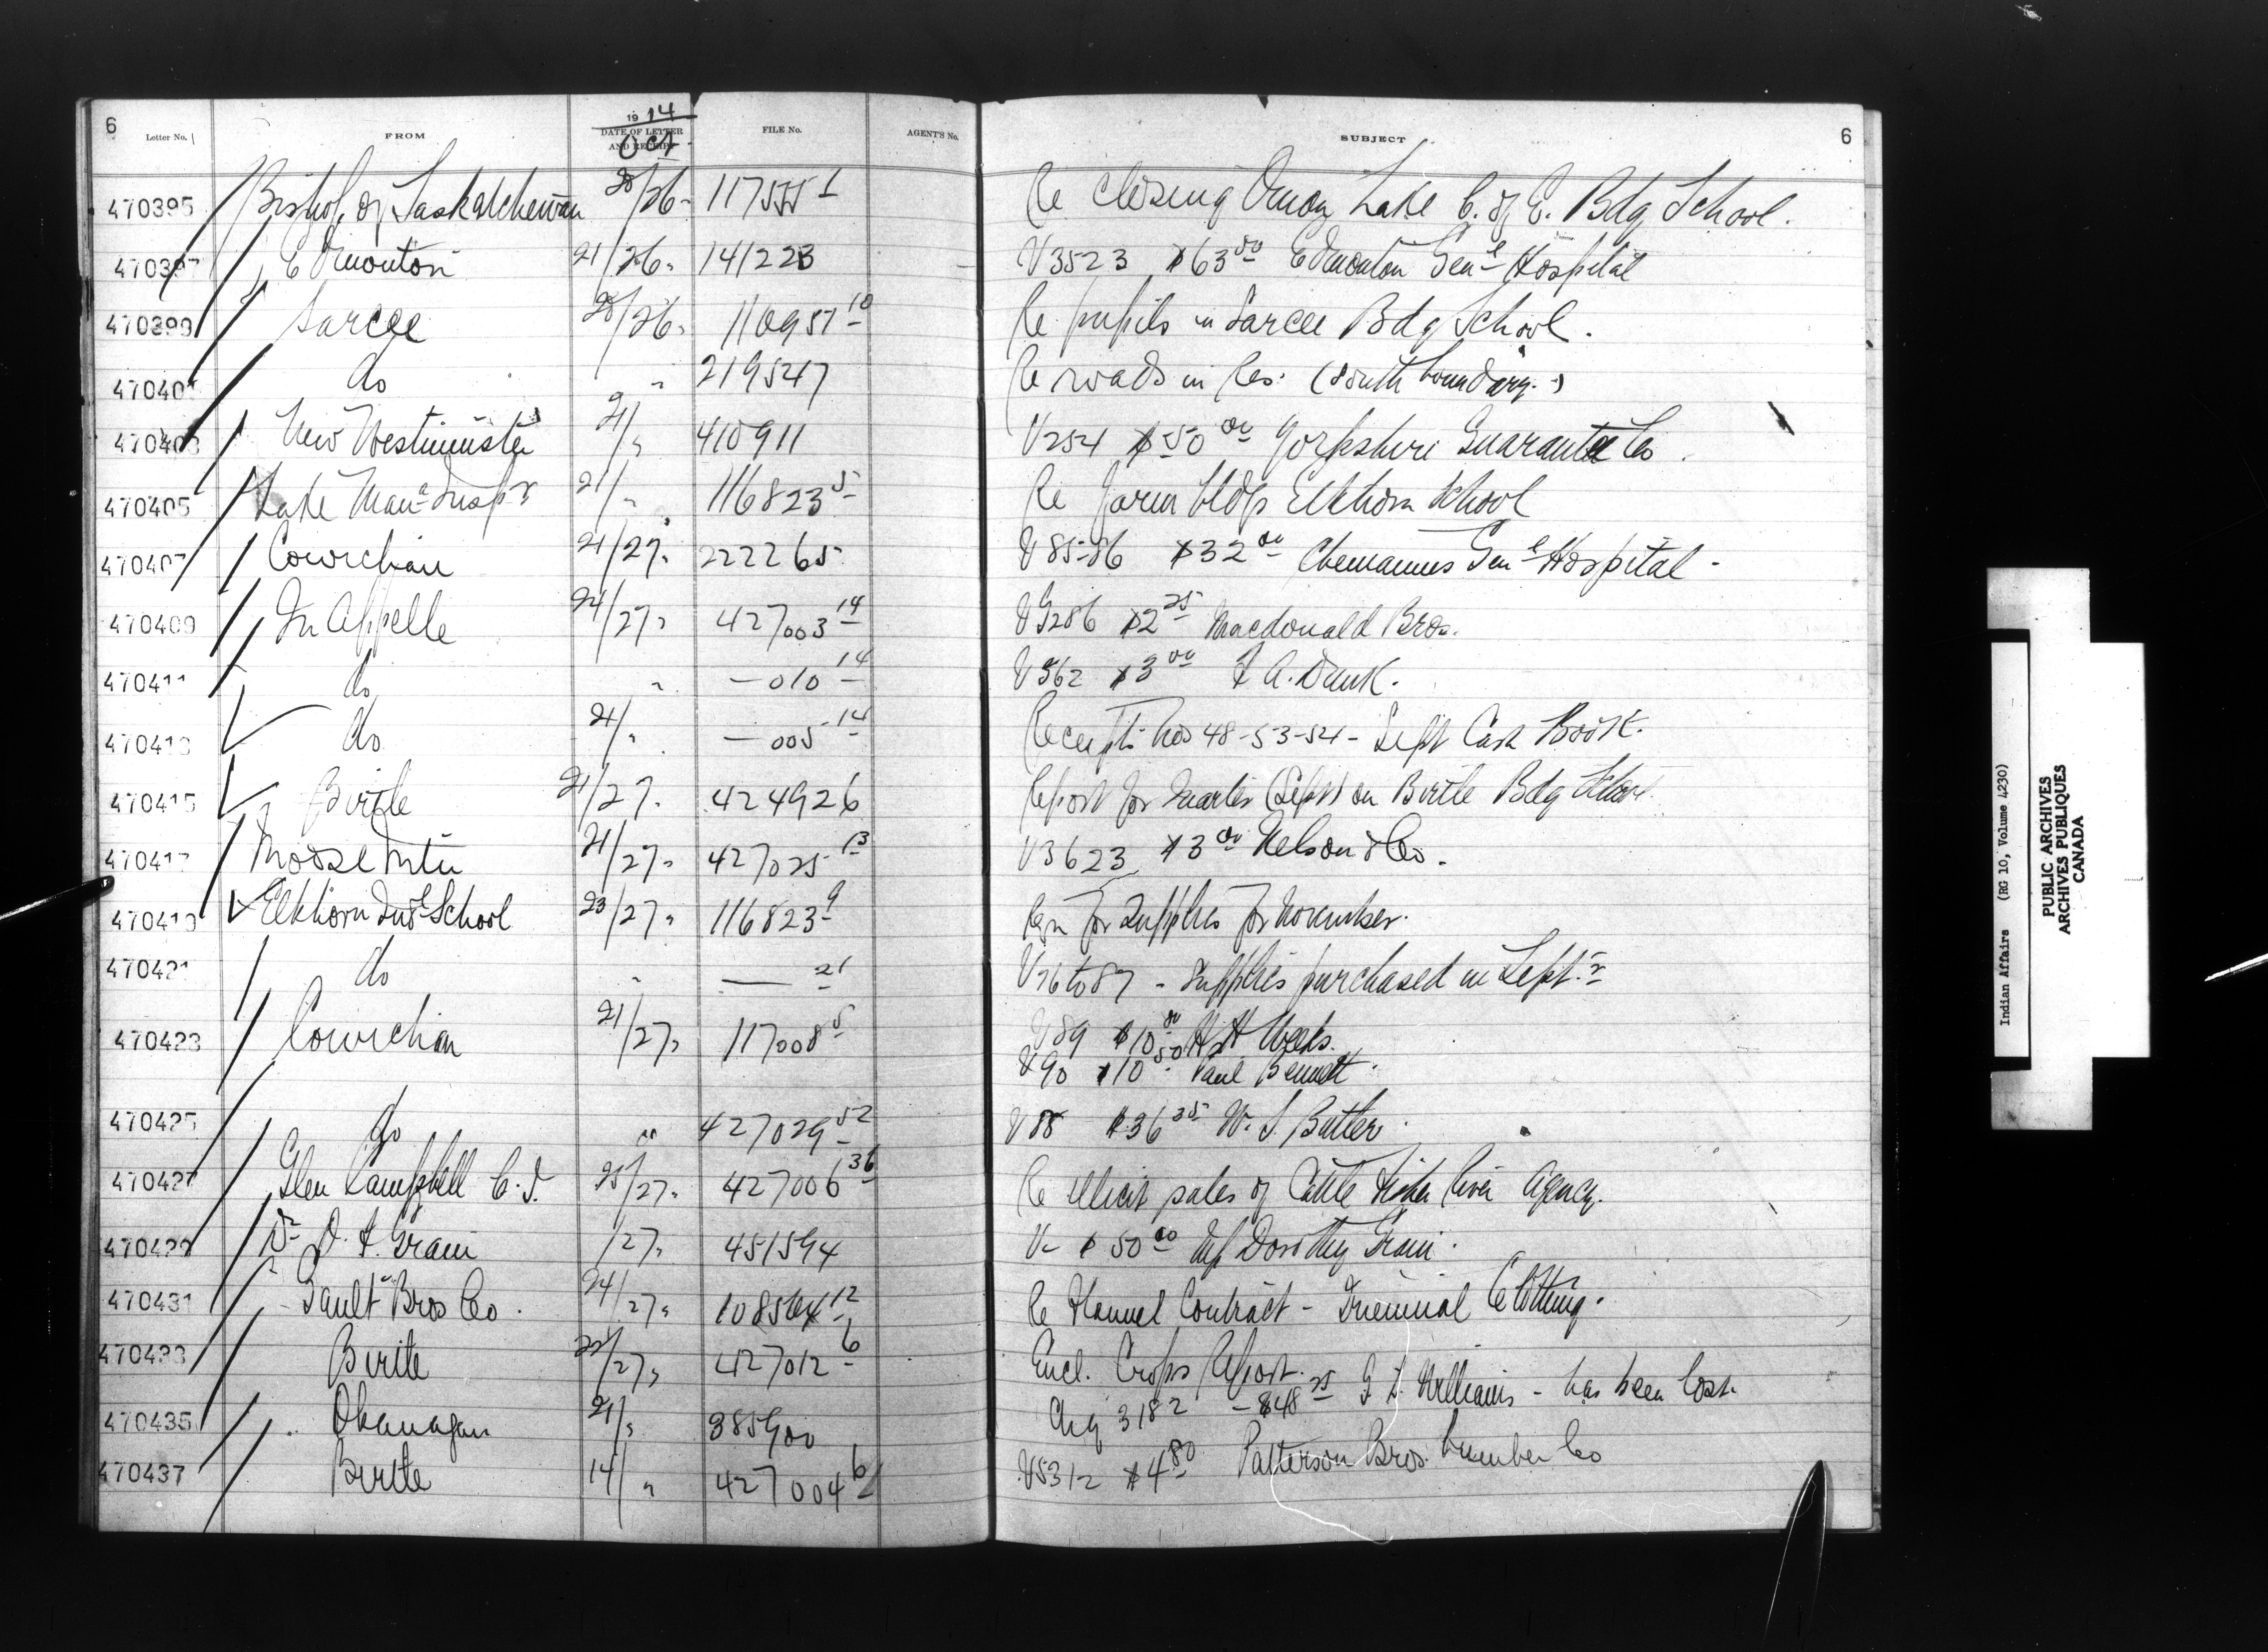 6
Letter No.
FROM
1914
DATE OF LETTER
AND RECEIPT
Oct
FILE No.
AGENT'S No.
SUBJECT
6
470395 Bishop of Saskatchewan /26 Re closing Onion Lake C. of E. Bdg School.
470397 Edmonton 21/26 141223 V3523 $63 50 Edmonton Genl Hospital
470399 Sarcee /26 110957 10 Re pupils in Sarcee Bdg School.
470401 do " 219547 Re roads in Res. (South boundary.)
470403 New Westminster 21/" 410911 V254 $50 00 Yorkshire Guarantee Co.
470405 Lake Mana Inspr 21/" 116823 5 Re farm bldgs Elkhorn School
470407 Cowichan 21/27 222265 V85-86 $32 00 Chemainus Genl Hospital -
470409 Qu Appelle 24/27 427003 14 $2 25 Macdonald Bros.
470411 do " —010 14 V362 $3 00 A. Dunk.
470413 do 21/" —005 14 Receipts Nos 48-53-54- Sept Cash Book.
470415 Birtle 21/27 424926 Report for Quarter (Sept) on Birtle Bdg School.
470417 Moose Mtn 21/27 427025 13 V3623 $3 00 Nelson & Co.
470419 Elkhorn Indl School 23/27 116823 9 Rqn for Supplies for November.
470421 do " — 21 V76 to 87 - Supplies purchased in Septr
470423 Cowichan 21/27 117008 5 V89 $10 00 H H Weeks.
V90 $10 50 Paul Bennett.
470425 do " 427029 52 V88 $36 35 W. S. Butler.
470427 Glen Campbell C.I. 25/27 427006 36 Re illicit sales of Cattle Fisher River Agency.
470429 Dr O. I. Grain /27 451594 V- $50 00 Dorothy Grain.
470431 Gault Bros Co. 24/27 108564 12 Re Flannel Contract - Triennial Clothing.
470433 Birtle /27 427012 6 Encl. Crops Report.
470435 Okanagan 21/" 385900 Chq 3182 - $48 25 Williams - has been lost.
470437 Birtle 14/" 427004 6 V5312 $4 80 Patterson Bros. Lumber Co
Indian Affairs (RG 10, Volume 4230)
PUBLIC ARCHIVES
ARCHIVES PUBLIQUES
CANADA